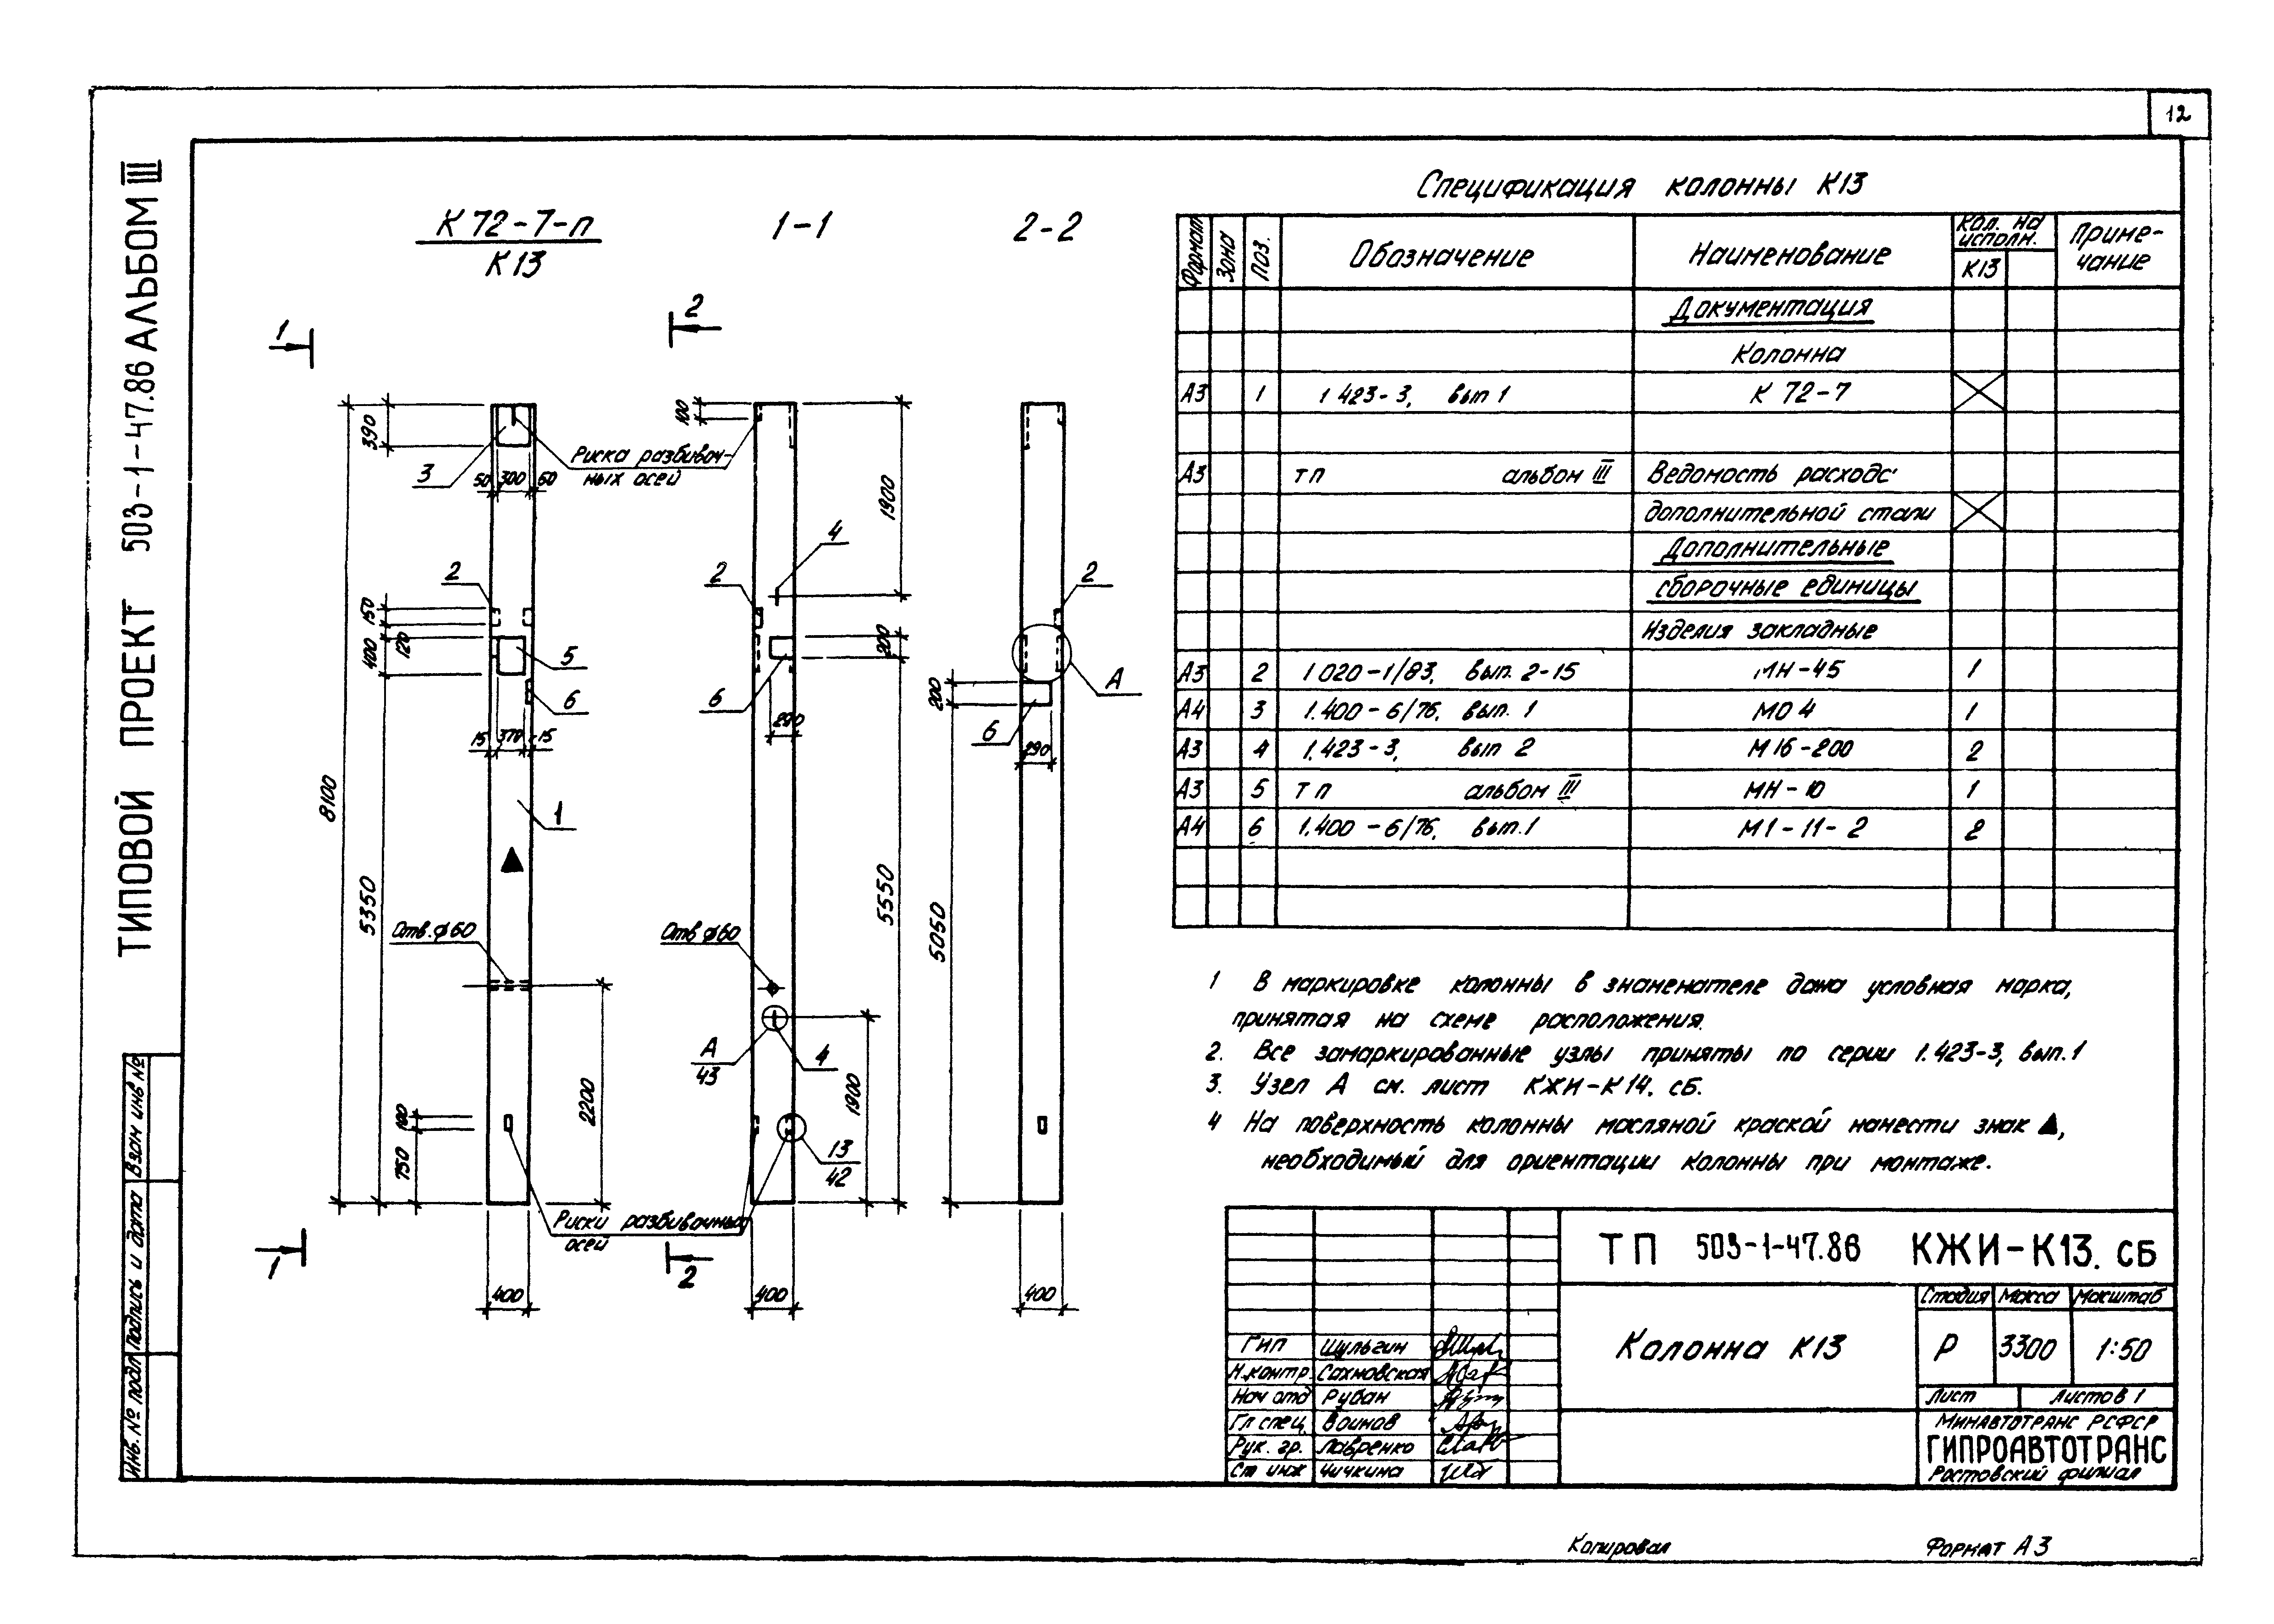 12
ТИПОВОЙ ПРОЕКТ 503-1-47.86 АЛЬБОМ III
К 72-7-п
К13
1-1
2-2
1
2
390
3
50
300
50
Риска разбивоч-
ных осей
100
1900
4
2
150
400
120
5
6
15
370
15
2
200
6
290
2
А
200
6
290
8100
5350
1
Отв. ф60
2200
100
750
Отв ф60
А
43
4
1900
5550
5050
13
42
Риски разбивочных
осей
1
2
400
400
400
Спецификация колонны К13
Формат
Зона
Поз.
Обозначение
Наименование
Кол. на
исполн.
К13
Приме-
чание
Документация
Колонна
А3 1 1 423-3, вып 1 К 72-7
А3 ТП альбом III Ведомость расхода
дополнительной стали
Дополнительные
сборочные единицы
Изделия закладные
А3 2 1 020-1/83, вып. 2-15 МН-45 1
А4 3 1.400-6/76, вып. 1 МО 4 1
А3 4 1.423-3, вып 2 М16-200 2
А3 5 ТП альбом III МН-10 1
А4 6 1.400-6/76, вып.1 М1-11-2 2
1 В маркировке колонны в знаменателе дана условная марка,
принятая на схеме расположения.
2. Все замаркированные узлы приняты по серии 1.423-3, вып.1
3. Узел А см. лист КЖИ-К14. сб.
4 На поверхность колонны масляной краской нанести знак ▲,
необходимый для ориентации колонны при монтаже.
ТП 503-1-47.86 КЖИ-К13. СБ
Колонна К13
Стадия Масса Масштаб
Р 3300 1:50
Лист Листов 1
Минавтотранс РСФСР
ГИПРОАВТОТРАНС
Ростовский филиал
ГИП Шульгин
Н.контр. Сахновская
Нач отд Рубан
Гл спец. Воинов
Рук. гр. Лавренко
Ст инж Чичкина
Инв. № подл
Подпись и дата
Взам инв №
Копировал
Формат А3